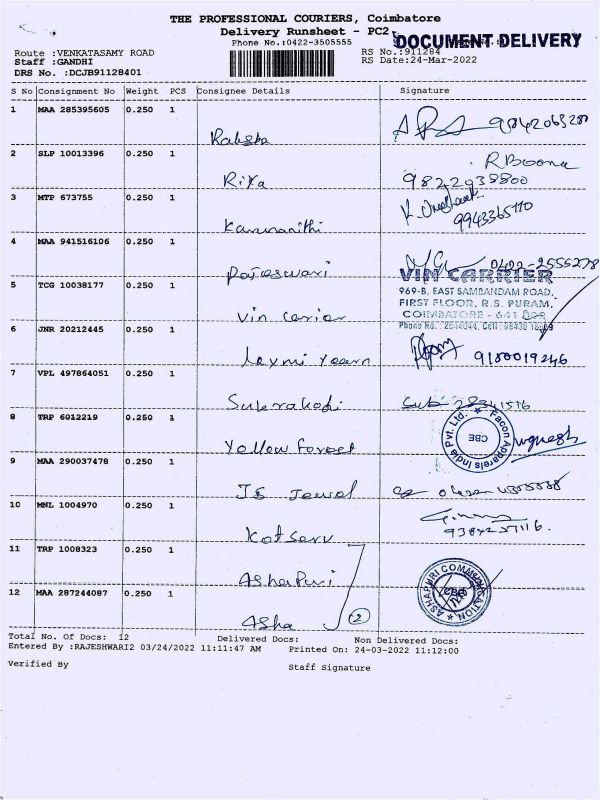 THE PROFESSIONAL COURIERS, Coimbatore
Delivery Runsheet - PC2
DOCUMENT DELIVERY
Phone No.:0422-3505555
Route :VENKATASAMY ROAD
RS No.:911284
Staff :GANDHI
RS Date:24-Mar-2022
DRS No. :DCJB91128401
S No Consignment No Weight PCS Consignee Details Signature
1 MAA 285395605 0.250 1
Raksha
2 SLP 10013396 0.250 1 R Boona
Riya 9822938800
3 MTP 673755 0.250 1
Karunanithi 9943365110
4 MAA 941516106 0.250 1
Rajeswari 0422-2555278
VIN CARRIER
5 TCG 10038177 0.250 1 969-B, EAST SAMBANDAM ROAD,
FIRST FLOOR, R.S. PURAM,
Vin Carior COIMBATORE - 641 002
6 JNR 20212445 0.250 1 Phone No.
Laxmi 9180019246
7 VPL 497864051 0.250 1
8 TRP 6012219 0.250 1 Facon Apparels India Pvt. Ltd.
CBE
Yellow Forest
9 MAA 290037478 0.250 1
JS Jewel
10 MNL 1004970 0.250 1
11 TRP 1008323 0.250 1
AshaPuri
ASHAPURI COMMUNICATION
12 MAA 287244087 0.250 1
Asha 2
Total No. Of Docs: 12 Delivered Docs: Non Delivered Docs:
Entered By :RAJESHWARI2 03/24/2022 11:11:47 AM Printed On: 24-03-2022 11:12:00
Verified By Staff Signature